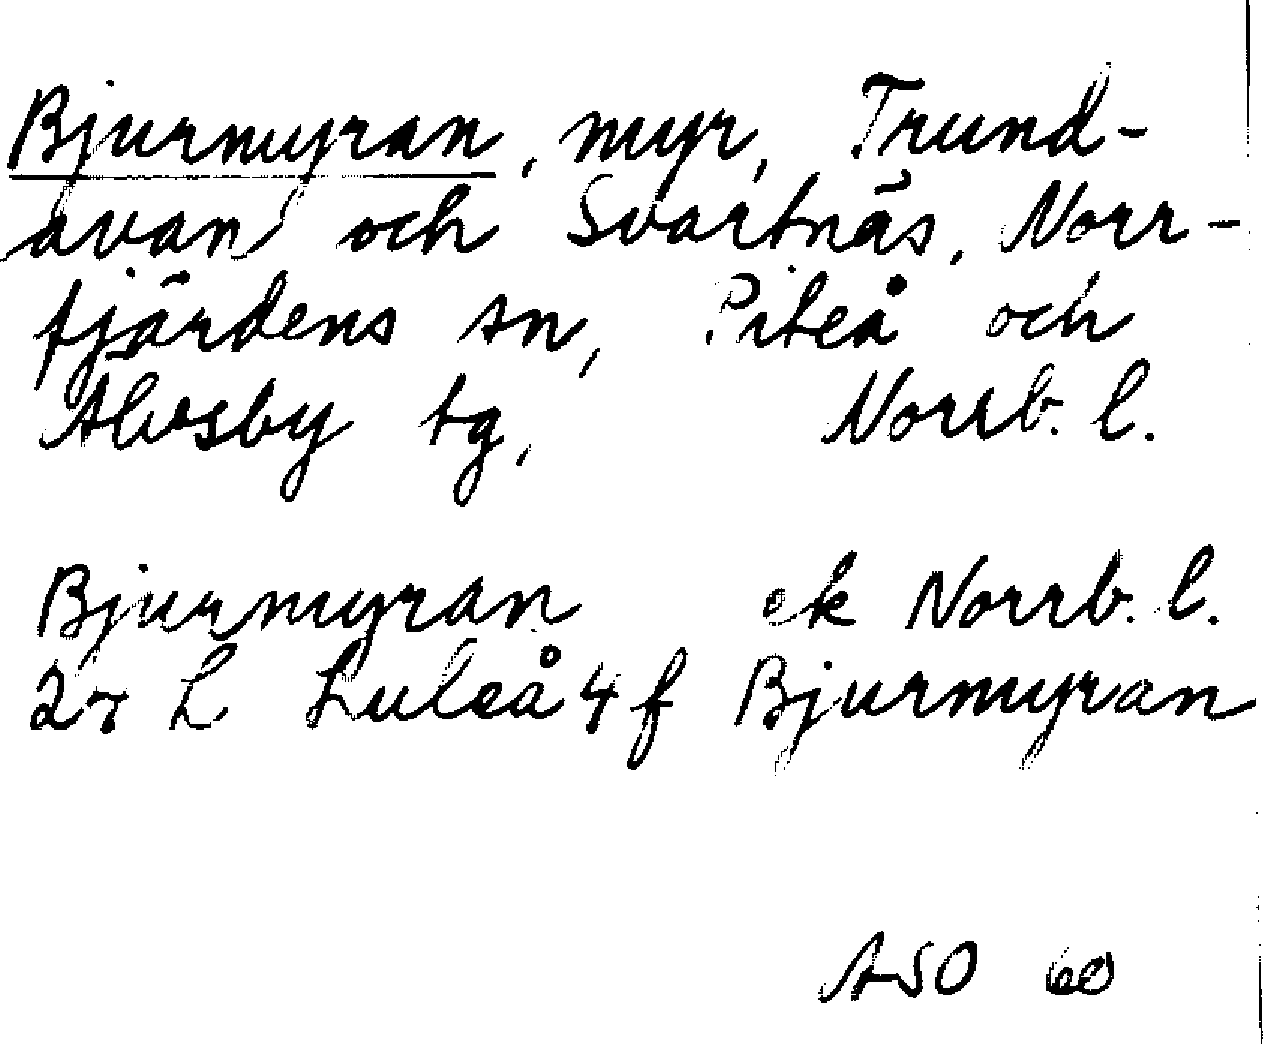 Bjurmyran, myr, Trund-
avan och Svartnäs, Norr-
fjärdens sn, Piteå och
Älvsby tg, Norrb. l.
Bjurmyran ek Norrb. l.
27 L Luleå 4 f Bjurmyran
ASO 60